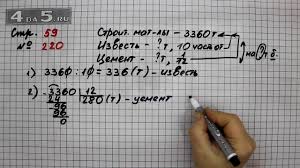 4DA5.RU
Стр. 59
№ 220
Строит. мат-лы - 3360 т
Известь - ? т, 10 часть от
Цемент - ? т, 1/12
на ? т б.
1) 3360 : 10 = 336 (т) - известь
2) 3360 | 12
24 | 280 (т) - цемент
96
96
0